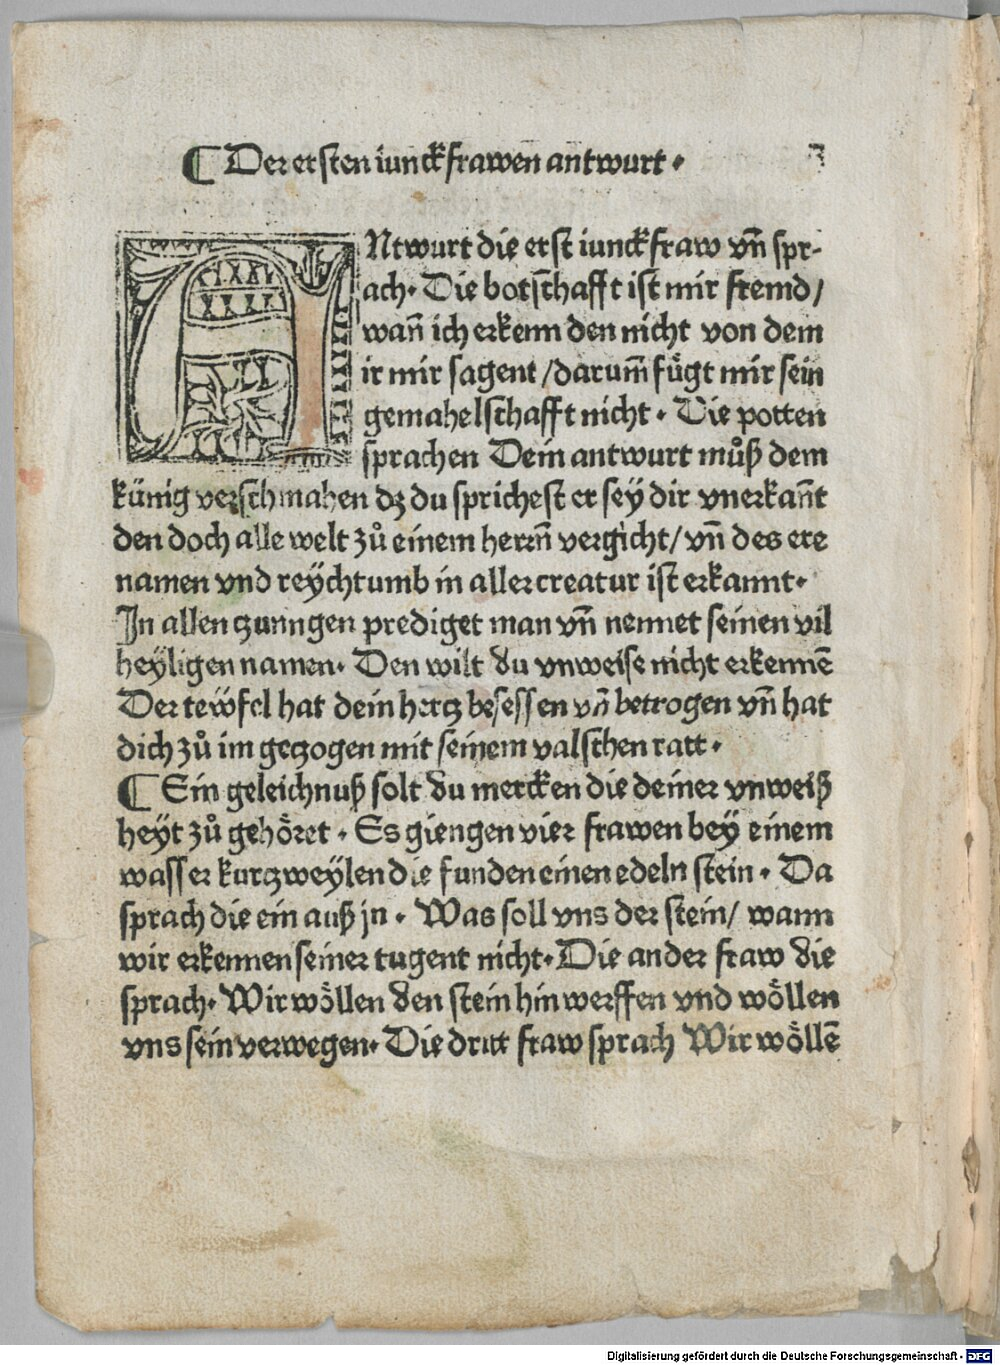 ¶ Der ersten iunckfrawen antwurt·
ANtwurt die erst iunckfraw vn̄ spr-
ach· Die botschafft ist mir fremd/
wan̄ ich erkenn den nicht von dem
ir mir sagent /darum̄ fu̎gt mir sein
gemahelschafft nicht· Die potten
sprachen Dein antwurt mu̇ͦß dem
künig verschmahen dz du sprichest er sey dir vnerkan̄t
den doch alle welt zů einem herrn̄ vergicht/ vn̄ des ere
namen vnd reÿchtumb in aller creatur ist erkannt·
In allen zunngen prediget man vn̄ nennet seinen vil
heÿligen namen· Den wilt du vnweise nicht erkennē
Der tewfel hat dein hertz besessen vn̄ betrogen vn̄ hat
dich zů im gezogen mit seinem valschen ratt·
¶ Ein geleichnuß solt du mercken die deiner vnweiß
heÿt zů gehöret· Es giengen vier frawen beÿ einem
wasser kurtzweÿlen die funden einen edeln stein· Da
sprach die ein auß jn· Was soll vns der stein/ wann
wir erkennen seiner tugent nicht· Die ander fraw die
sprach· Wir wöllen den stein hin werffen vnd wöllen
vns sein verwegen· Die dritt fraw sprach Wir wöllē
Digitalisierung gefördert durch die Deutsche Forschungsgemeinschaft - DFG